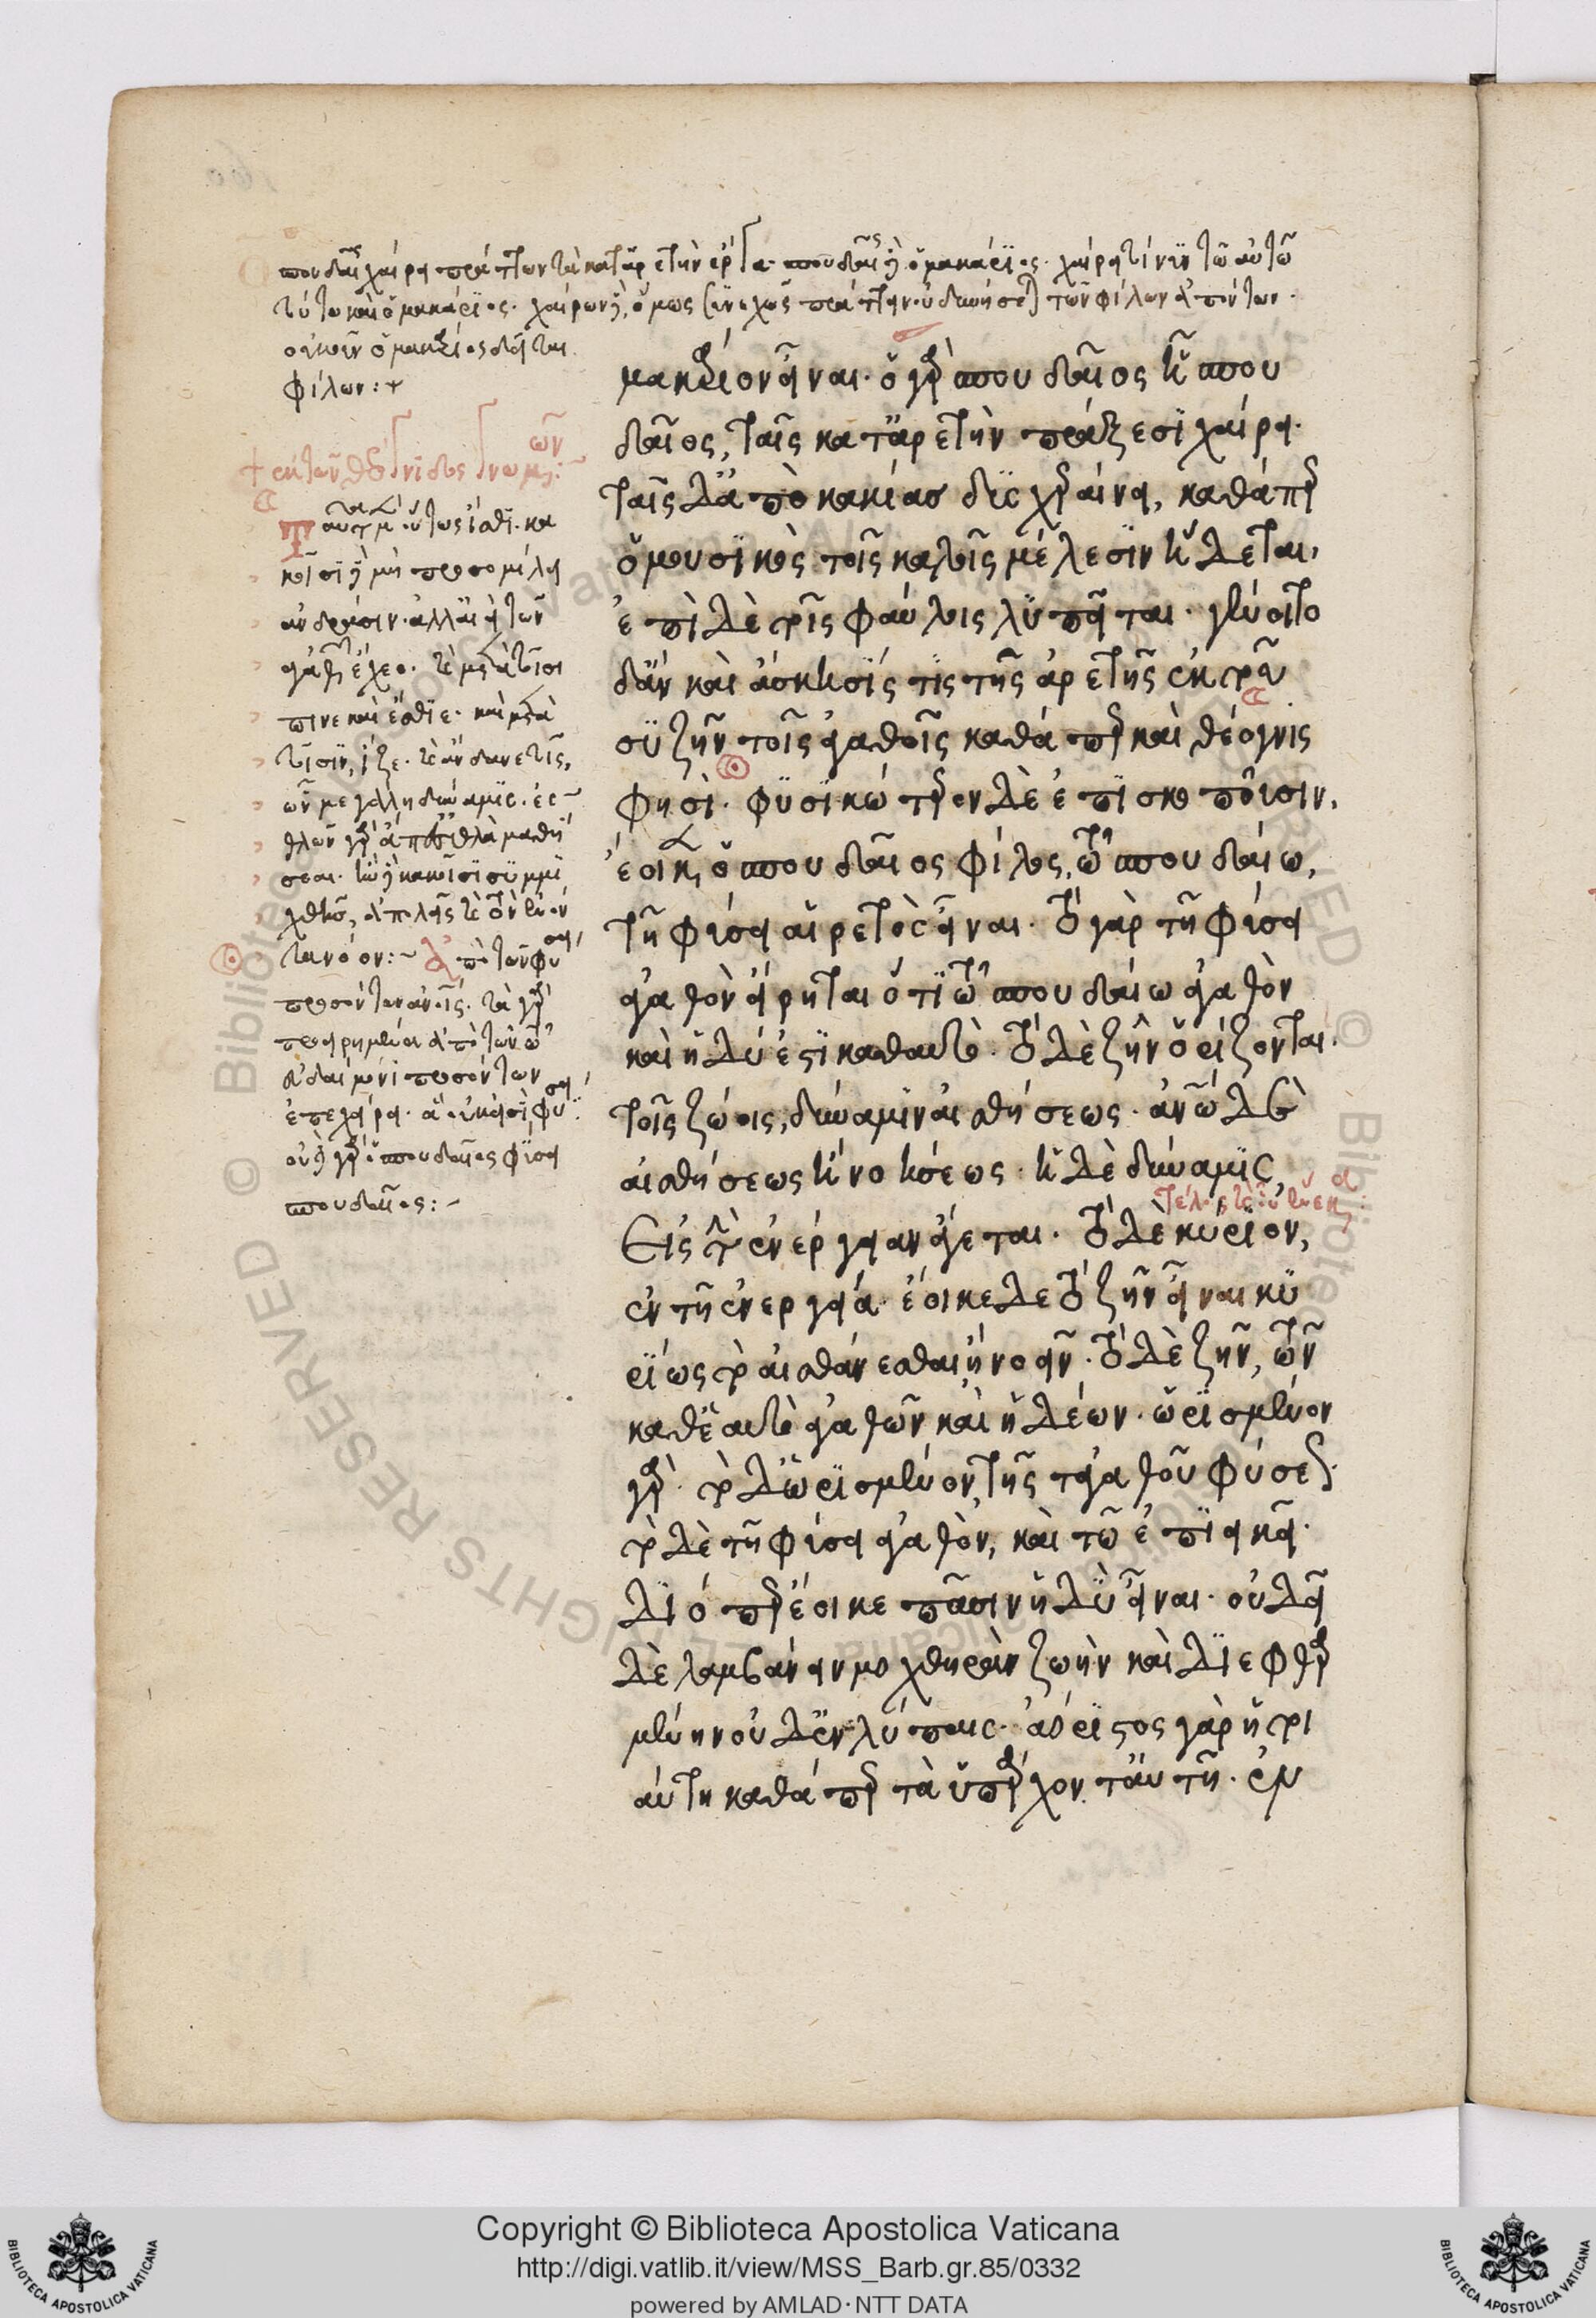 σπουδαῖος χαίρει πράττων τὰ κατ' ἀρετὴν ἔργα· σπουδαῖος δὲ ὁ μακάριος· χαίρει τοίνυν τῷ αὐτῷ
τούτῳ καὶ ὁ μακάριος· χαίρων δὲ, ὅμως συνεχῶς πράττειν οὐ δυνήσεται τῶν φίλων ἀπόντων·
ὁ μακάριος δεῖται
φίλων:+
μακάριον εἶναι· ὁ γὰρ σπουδαῖος ᾗ σπου
δαῖος, ταῖς κατ' ἀρετὴν πράξεσι χαίρει·
ταῖς δ' ἀπὸ κακίας δυσχεραίνει, καθάπερ
ὁ μουσικὸς τοῖς καλοῖς μέλεσιν ἥδεται,
ἐπὶ δὲ τοῖς φαύλοις λυπεῖται· γένοιτο
δ' ἂν καὶ ἄσκησίς τις τῆς ἀρετῆς ἐκ τοῦ
συζῆν τοῖς ἀγαθοῖς καθάπερ καὶ θέογνις
φησί· φυσικώτερον δὲ ἐπισκοποῦσιν,
ἔοικεν ὁ σπουδαῖος φίλος, τῷ σπουδαίῳ,
τῇ φύσει αἱρετὸς εἶναι· τὸ γὰρ τῇ φύσει
ἀγαθὸν εἴρηται ὅτι τῷ σπουδαίῳ ἀγαθὸν
καὶ ἡδύ ἐστι καθαυτό· τὸ δὲ ζῆν ὁρίζονται
τοῖς ζώοις, δυνάμει αἰσθήσεως· ἀνων δὲ
αἰσθήσεως ἢ νοήσεως· ἡ δὲ δύναμις
τέλος
Εἰς τὴν ἐνέργειαν ἀνάγεται· τὸ δὲ κύριον,
ἐν τῇ ἐνεργείᾳ· ἔοικε δὲ τὸ ζῆν εἶναι κυ
ρίως τὸ αἰσθάνεσθαι ἢ νοεῖν· τὸ δὲ ζῆν, τῶν
καθ' ἑαυτὸ ἀγαθῶν καὶ ἡδέων· ὡρισμένον
γάρ· τὸ δ' ὡρισμένον, τῆς τἀγαθοῦ φύσεως·
τὸ δὲ τῇ φύσει ἀγαθὸν, καὶ τῷ ἐπιεικεῖ·
διόπερ ἔοικε πᾶσιν ἡδὺ εἶναι· οὐ δεῖ
δὲ λαμβάνειν μοχθηρὰν ζωὴν καὶ διεφθαρ
μένην οὐδ' ἐν λύπαις· ἀόριστος γὰρ ἡ τοι
αύτη καθάπερ τὰ ὑπάρχοντα αὐτῇ· ἐν
+ ἐκ τῶν θεόγνιδος γνωμῶν:
Ταῦτα μὲν οὕτως ἴσθι· κα
κοῖσι δὲ μὴ προσομίλει
ἀνδράσιν· ἀλλ' αἰεὶ τῶν
ἀγαθῶν ἔχεο· καὶ μετὰ τοῖσι
πῖνε καὶ ἔσθιε· καὶ μετὰ
τοῖσιν, ἵζε· καὶ ἅνδανε τοῖς,
ὧν μεγάλη δύναμις· ἐσ
θλῶν γὰρ ἄπ' ἐσθλὰ μαθή
σεαι· ἢν δὲ κακοῖσι συμμι
χθῇς, ἀπολεῖς καὶ τὸν ἐόν
τα νόον:~ ἀπὸ τῶν φύσει
προσόντων ἀνοις· τὰ γὰρ
προειρημένα ἀπὸ τῶν τῷ
εὐδαίμονι προσόντων
ἐπεχείρει· ἃ οὐκ εἰσὶ φύσει·
οὐδὲ γὰρ ὁ σπουδαῖος φύσει
σπουδαῖος:~
Copyright © Biblioteca Apostolica Vaticana
http://digi.vatlib.it/view/MSS_Barb.gr.85/0332
powered by AMLAD·NTT DATA